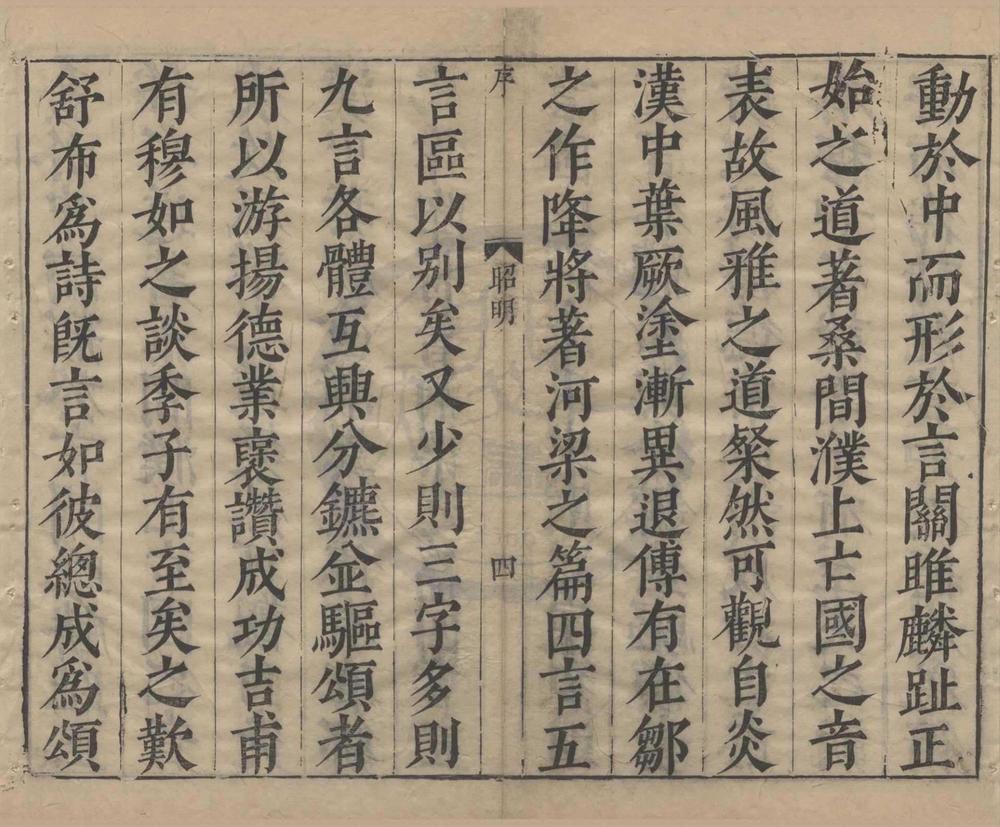 動於中而形於言關雎麟趾正
始之道著桑間濮上亡國之音
表故風雅之道粲然可觀自炎
漢中葉厥塗漸異退傅有在鄒
之作降將著河梁之篇四言五
序
昭明
四
言區以别矣又少則三字多則
九言各體互興分鑣並驅頌者
所以游揚德業褒讚成功吉甫
有穆如之談季子有至矣之歎
舒布爲詩旣言如彼總成爲頌